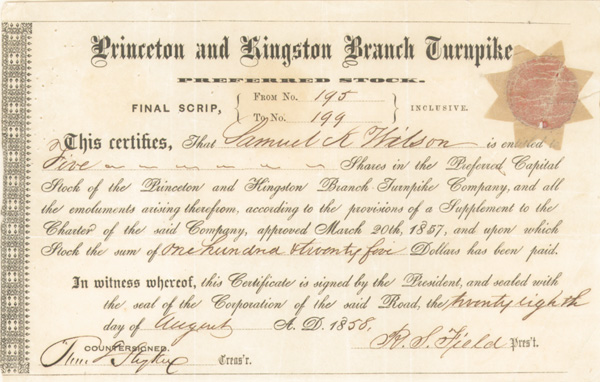 Princeton and Kingston Branch Turnpike
PREFERRED STOCK.
FINAL SCRIP, From No. 195 To No. 199 INCLUSIVE.
This certifies, That Samuel K Wilson is entitled to
Five Shares in the Preferred Capital
Stock of the Princeton and Kingston Branch Turnpike Company, and all
the emoluments arising therefrom, according to the provisions of a Supplement to the
Charter of the said Company, approved March 20th, 1857, and upon which
Stock the sum of One hundred & twenty five Dollars has been paid.
In witness whereof, this Certificate is signed by the President, and sealed with
the seal of the Corporation of the said Road, the twenty eighth
day of August A. D. 1858.
R. S. Field Pres't.
COUNTERSIGNED.
Treas'r.